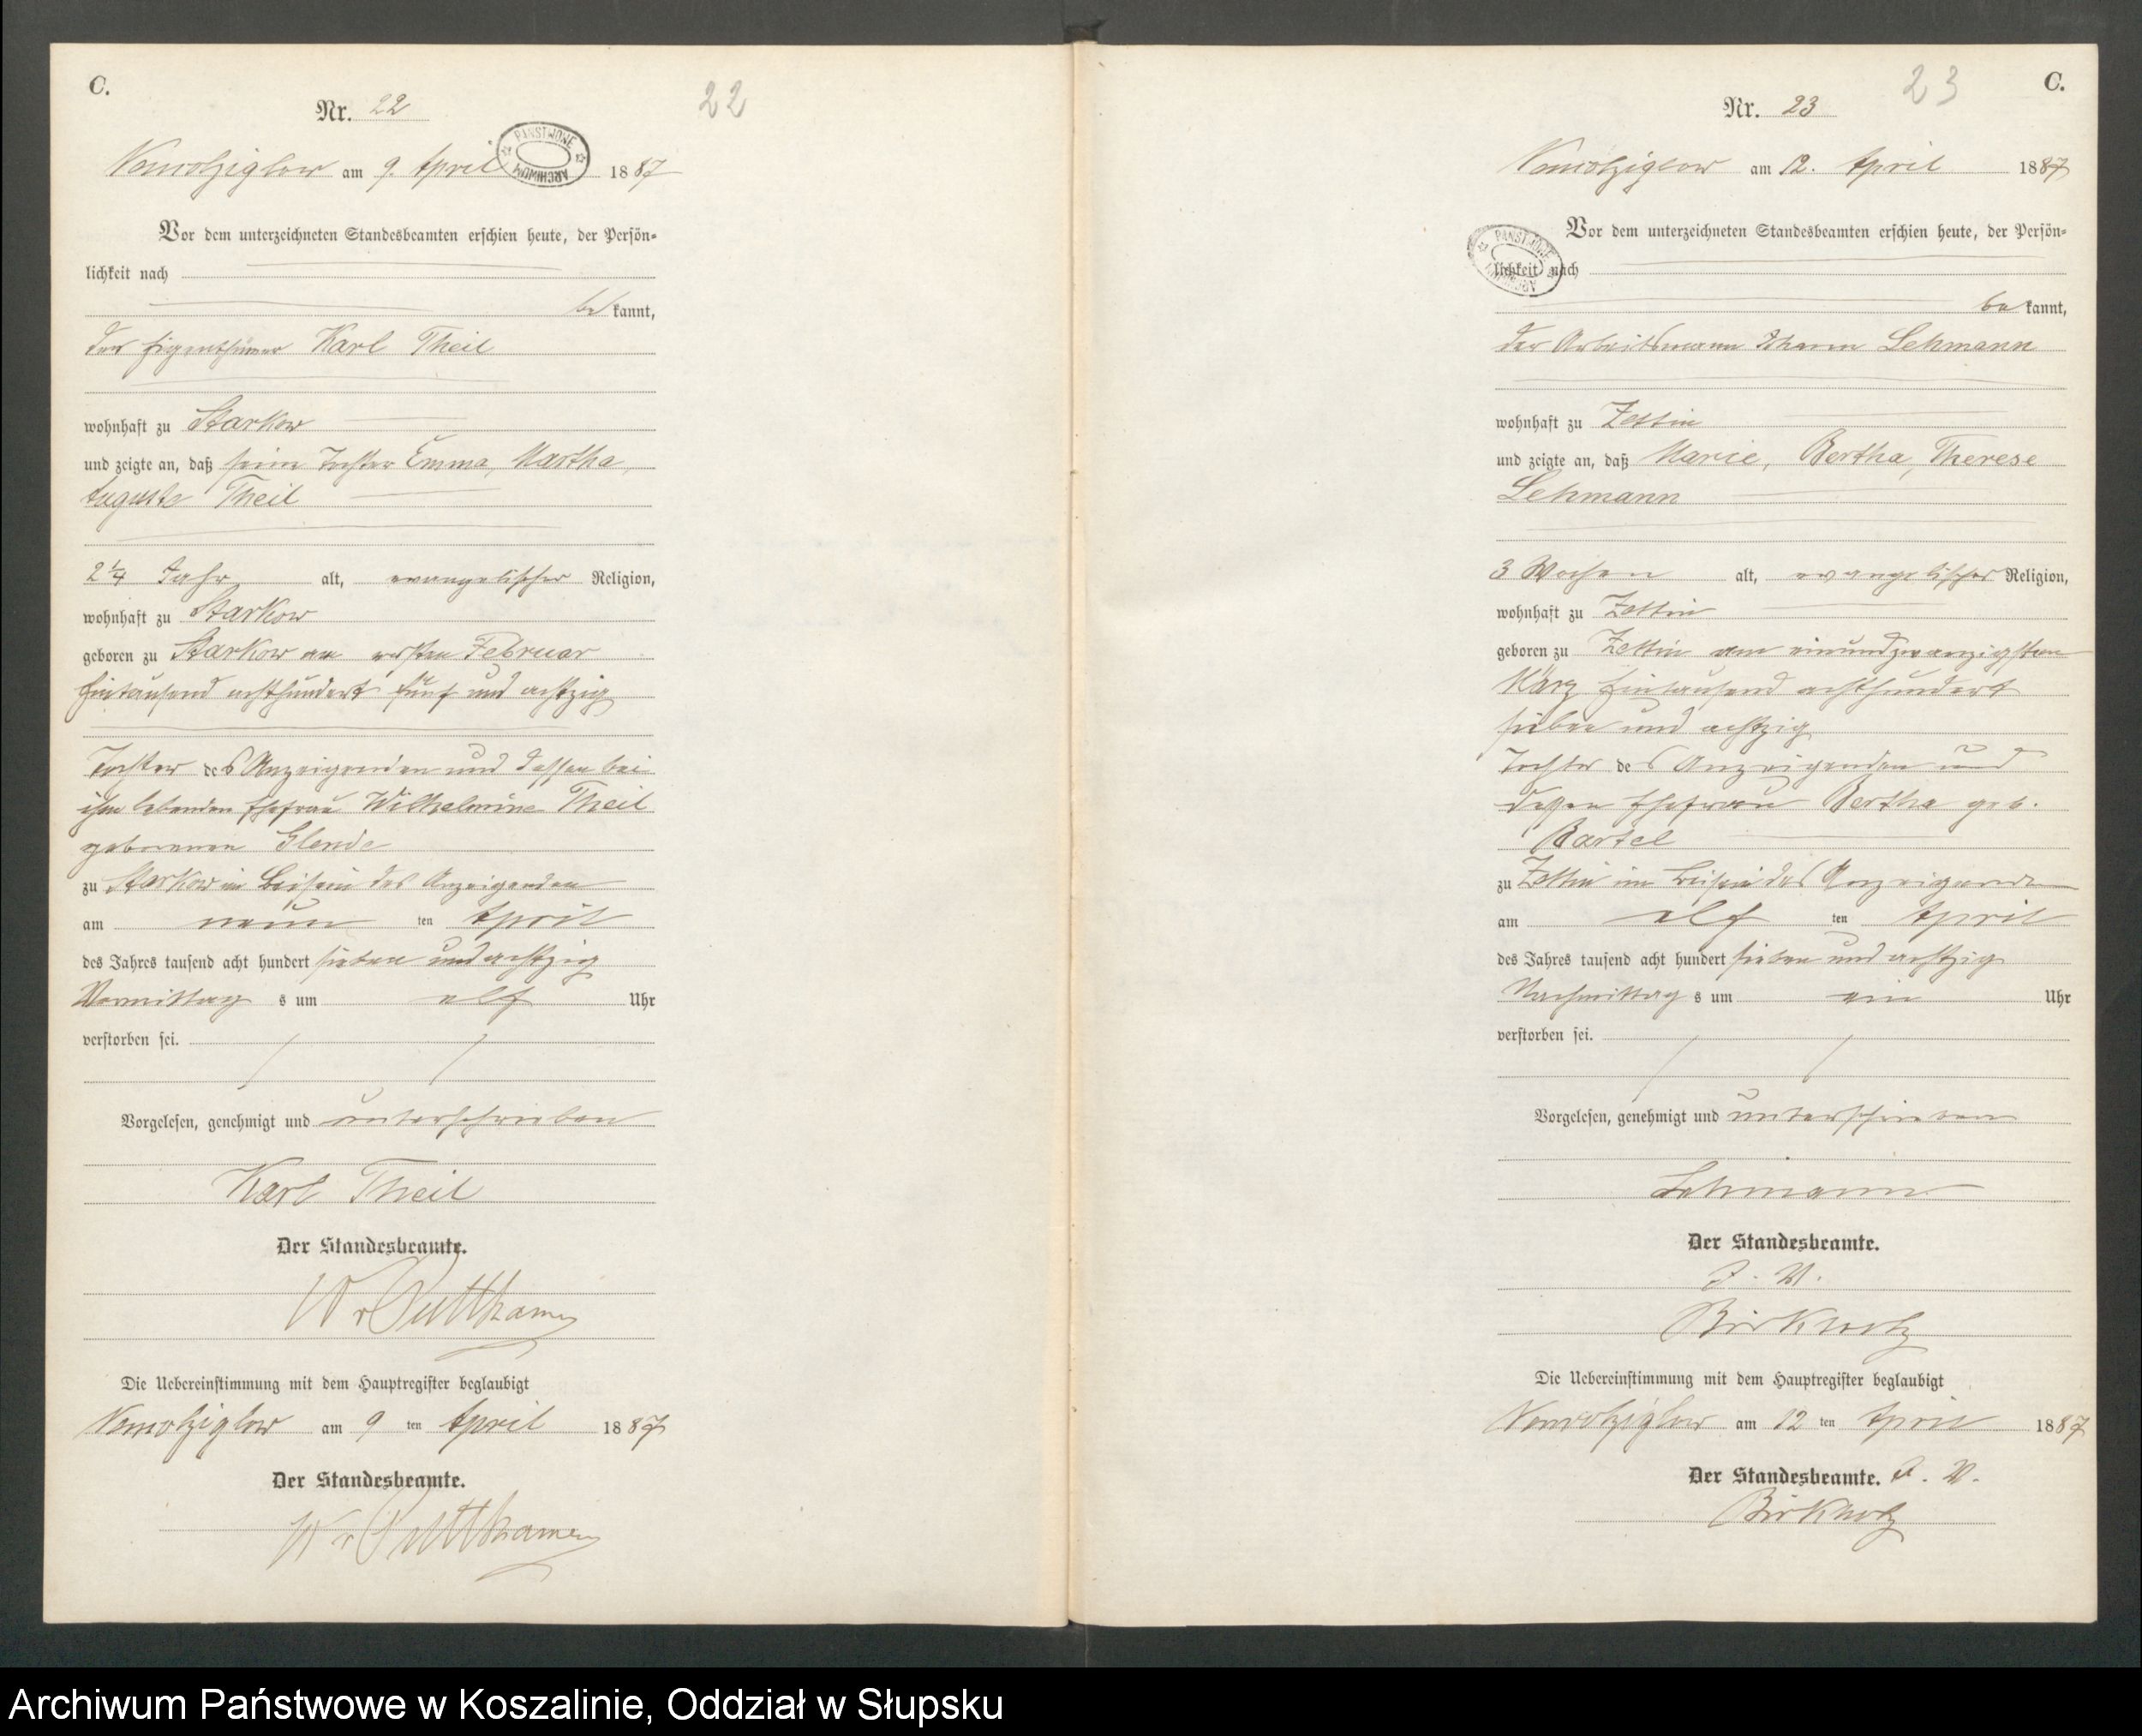 C.
Nr. 22
22
Nowolziglow am 9. April 1887
PAŃSTWOWE ARCHIWUM
Vor dem unterzeichneten Standesbeamten erschien heute, der Persön-
lichkeit nach
be kannt,
der Eigenthümer Karl Theil
wohnhaft zu Starkow
und zeigte an, daß seine Tochter Emma, Martha,
Auguste Theil
2 1/4 Jahr alt, evangelischer Religion,
wohnhaft zu Starkow
geboren zu Starkow am ersten Februar
Eintausend achthundert fünf und achtzig
Tochter des Anzeigenden und dessen bei
ihm lebenden Ehefrau Wilhelmine Theil
geborenen Glende
zu Starkow im Beisein des Anzeigenden
am neun ten April
des Jahres tausend acht hundert sieben und achtzig
Vormittag s um elf Uhr
verstorben sei.
Vorgelesen, genehmigt und unterschrieben
Karl Theil
Der Standesbeamte.
W v Puttkamer
Die Uebereinstimmung mit dem Hauptregister beglaubigt
Nowolziglow am 9 ten April 1887
Der Standesbeamte.
W v Puttkamer
23
C.
Nr. 23
Nowolziglow am 12. April 1887
PAŃSTWOWE ARCHIWUM
Vor dem unterzeichneten Standesbeamten erschien heute, der Persön-
lichkeit nach
be kannt,
der Arbeitsmann Johann Lehmann
wohnhaft zu Zettin
und zeigte an, daß Marie, Bertha, Therese
Lehmann
3 Wochen alt, evangelischer Religion,
wohnhaft zu Zettin
geboren zu Zettin am einundzwanzigsten
März Eintausend achthundert
sieben und achtzig
Tochter des Anzeigenden und
dessen Ehefrau Bertha geb.
Bartel
zu Zettin im Beisein des Anzeigenden
am elf ten April
des Jahres tausend acht hundert sieben und achtzig
Nachmittag s um ein Uhr
verstorben sei.
Vorgelesen, genehmigt und unterschrieben
Lehmann
Der Standesbeamte.
J. V.
Birkholz
Die Uebereinstimmung mit dem Hauptregister beglaubigt
Nowolziglow am 12 ten April 1887
Der Standesbeamte. J. V.
Birkholz
Archiwum Państwowe w Koszalinie, Oddział w Słupsku